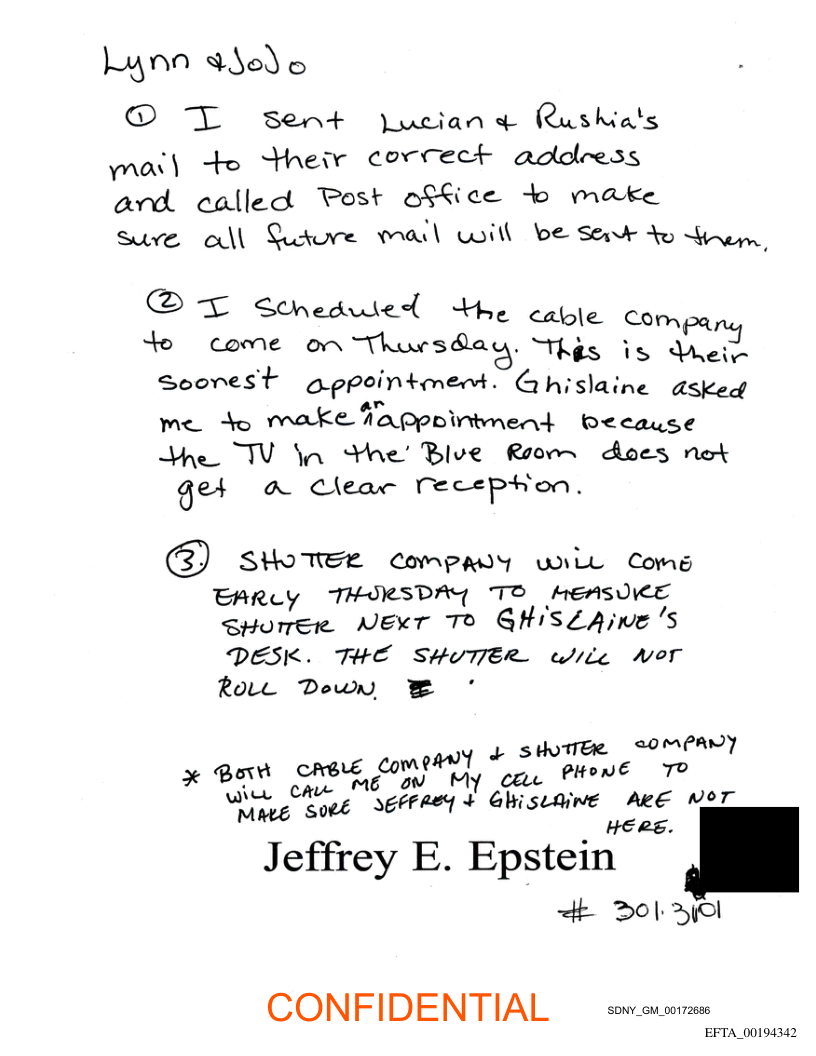 Lynn & JoJo
① I sent Lucian & Rushia's
mail to their correct address
and called Post office to make
sure all future mail will be sent to them.
② I scheduled the cable company
to come on Thursday. This is their
soonest appointment. Ghislaine asked
me to make an appointment because
the TV in the Blue Room does not
get a clear reception.
③. SHUTTER COMPANY WILL COME
EARLY THURSDAY TO MEASURE
SHUTTER NEXT TO GHISLAINE'S
DESK. THE SHUTTER WILL NOT
ROLL DOWN.
* BOTH CABLE COMPANY & SHUTTER COMPANY
WILL CALL ME ON MY CELL PHONE TO
MAKE SURE JEFFREY & GHISLAINE ARE NOT
HERE.
Jeffrey E. Epstein
# 301.3101
CONFIDENTIAL
SDNY_GM_00172686
EFTA_00194342